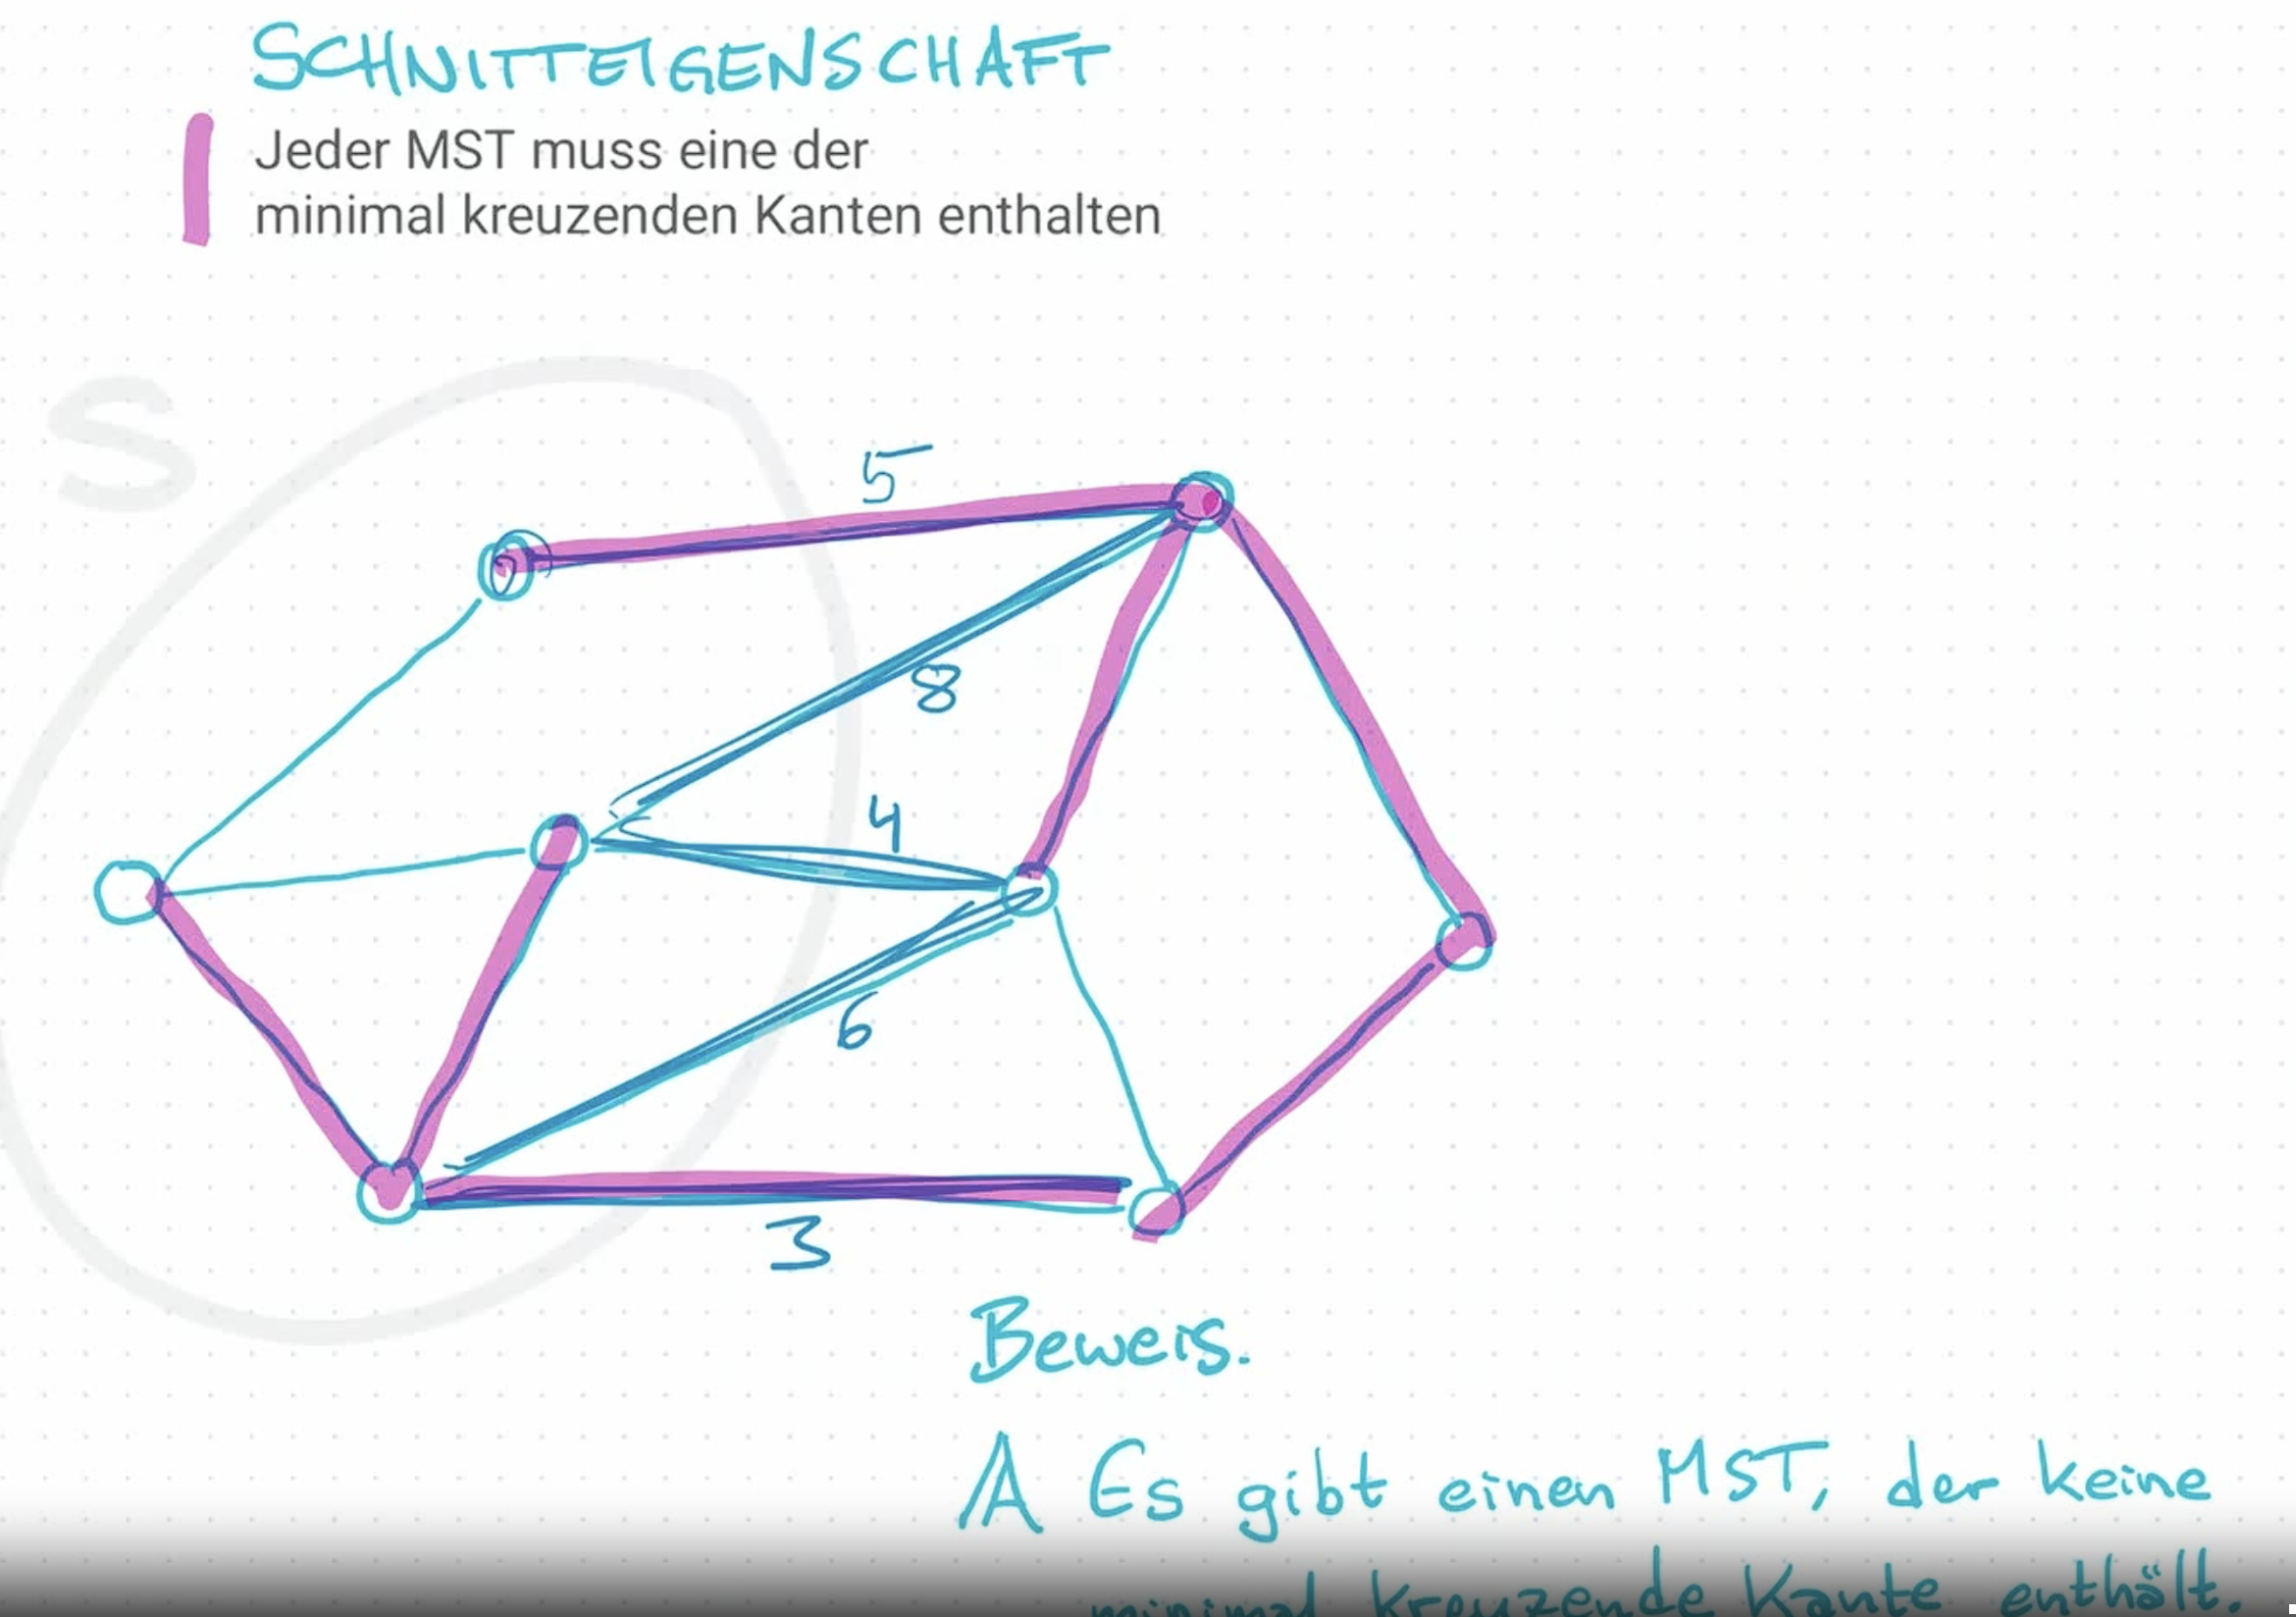 SCHNITTEIGENSCHAFT
Jeder MST muss eine der
minimal kreuzenden Kanten enthalten
S
5
8
4
6
3
Beweis.
A Es gibt einen MST, der keine
minimal kreuzende Kante enthält.